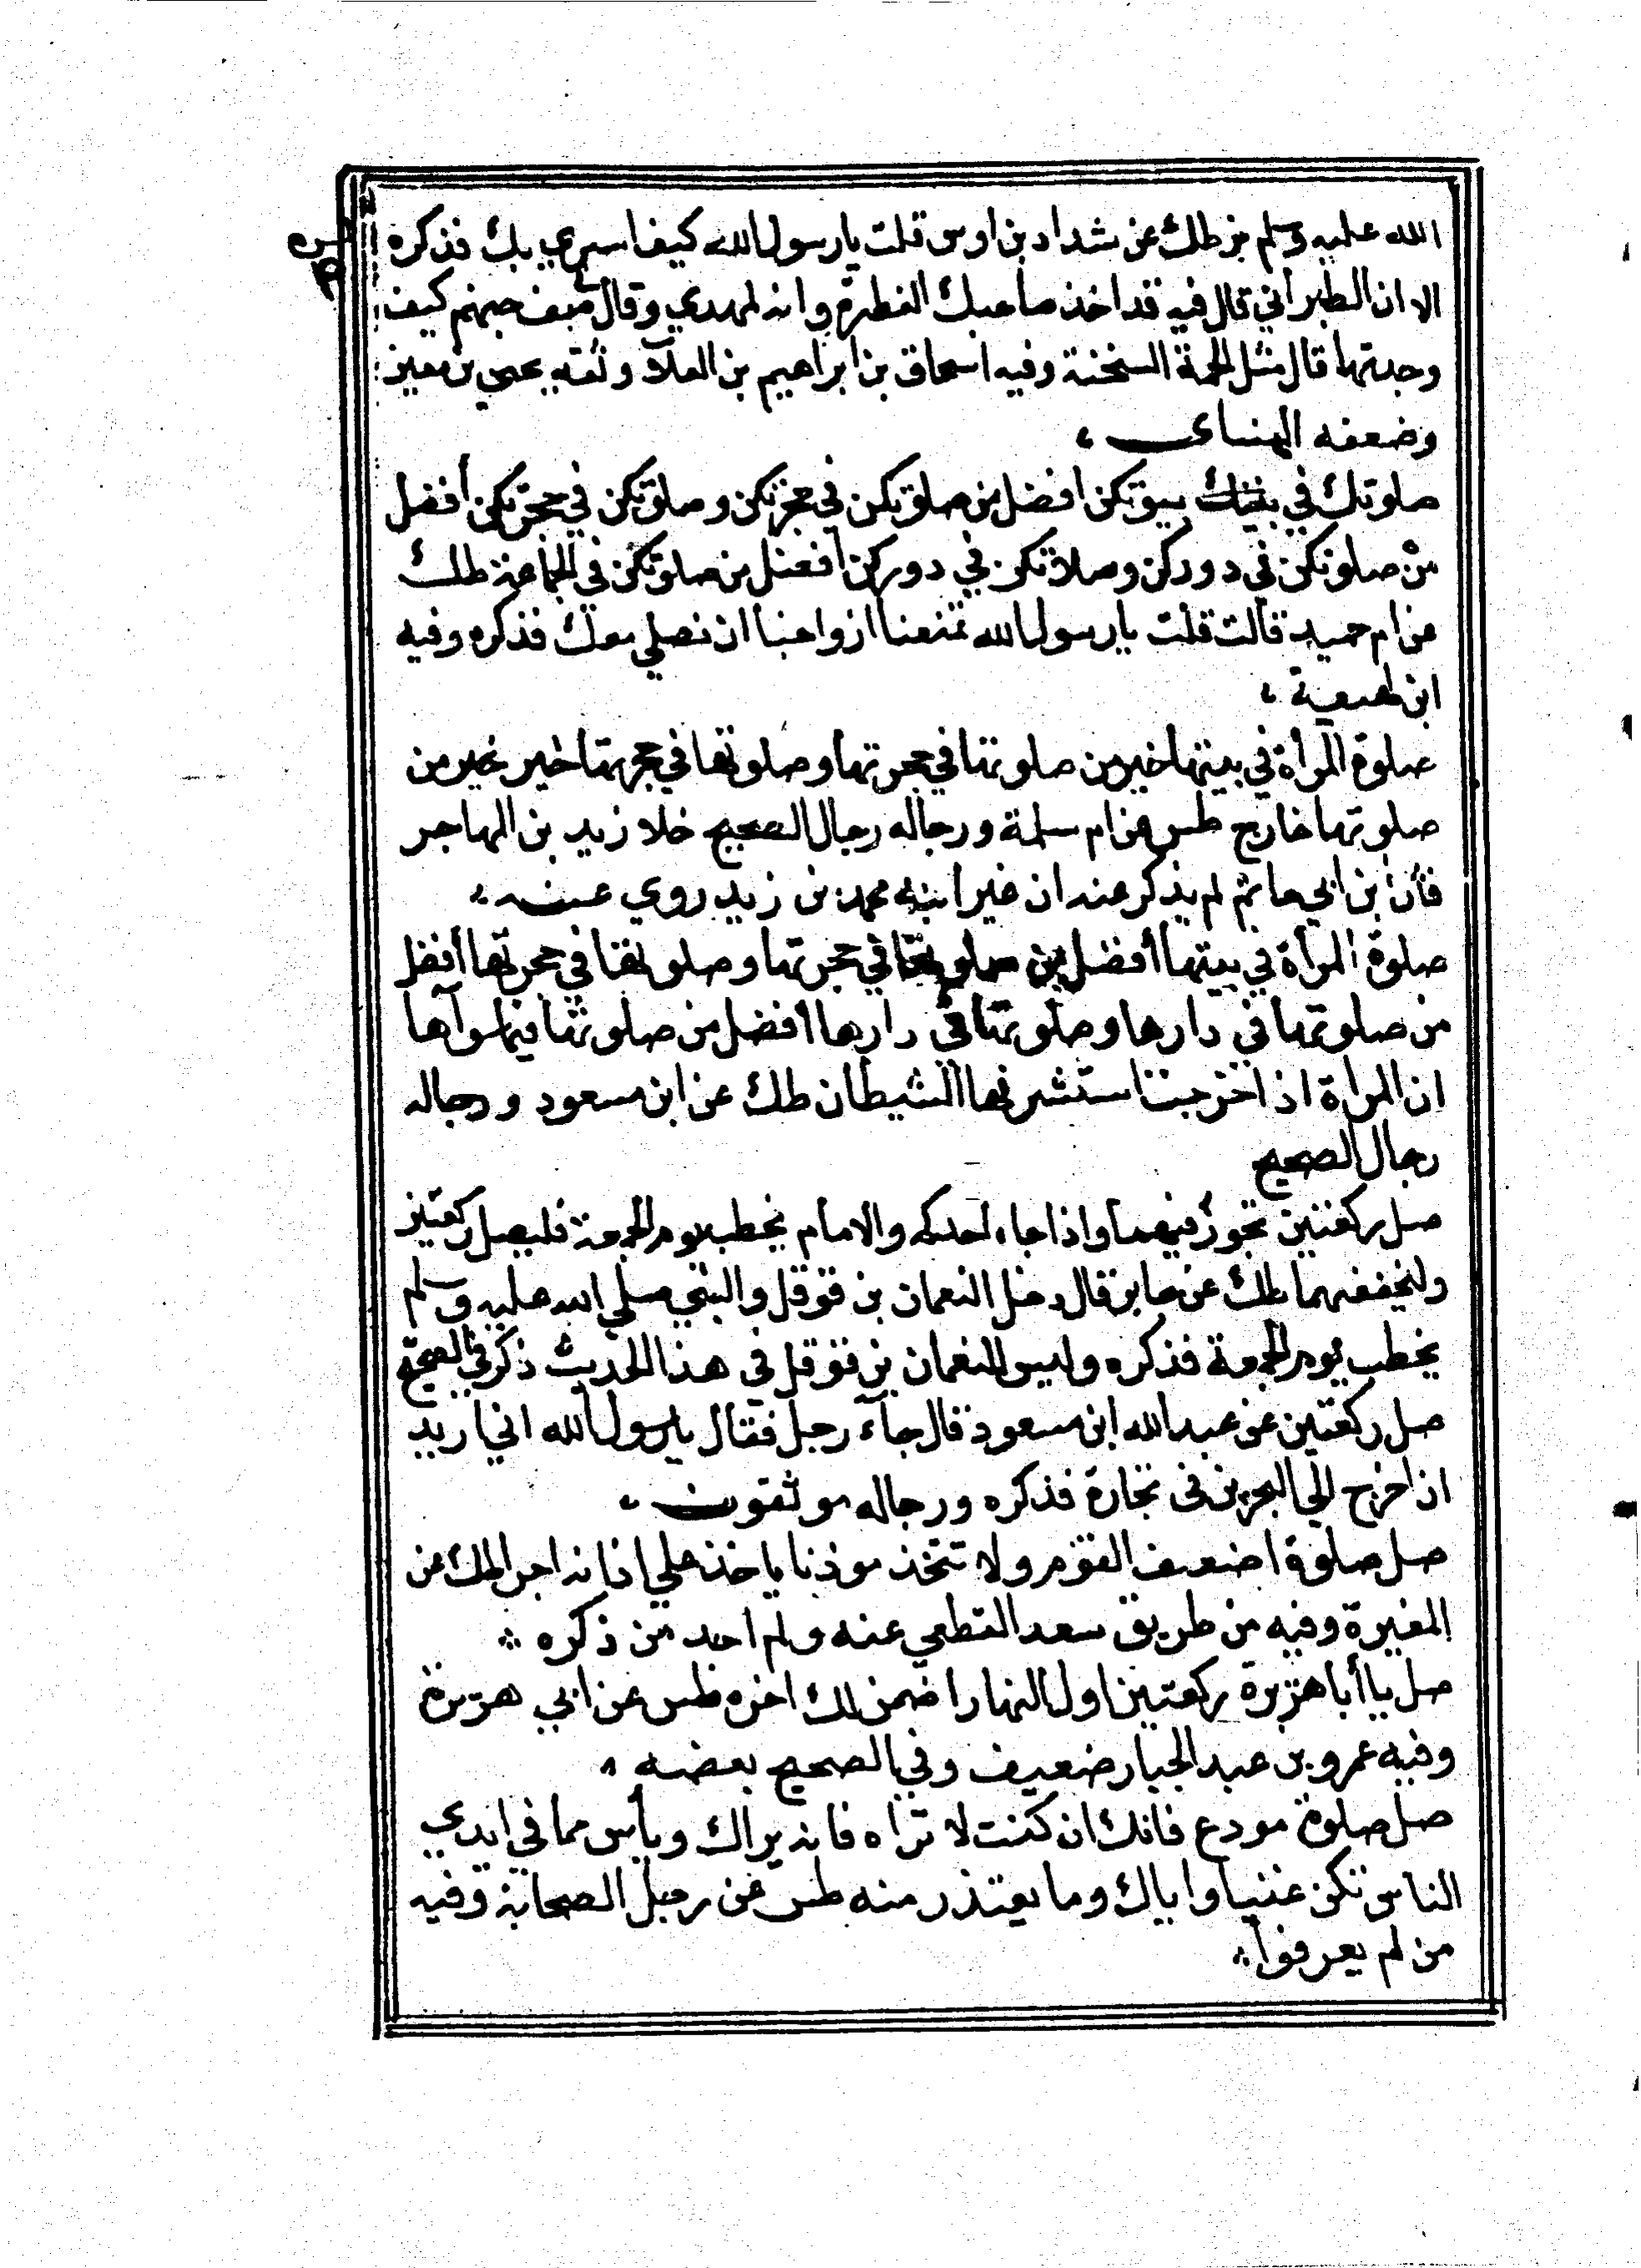 الله عليه وسلم بز طك عن شداد بن اوس قلت يا رسول الله كيف اسري بك فذكره
الا ان الطبراني قال فيه قد اخذ صاحبك الفطرة وانه لمهدي وقال جهنم كيف
وجدتها قال مثل الحمة السخنة وفيه اسحاق بن ابراهيم بن العلآ وثقه يحيي بن معين
وضعفه النساي
صلوتك في بيوتكن افضل من صلوتكن في حجرتكن وصلوتكن في حجرتكن أفضل
من صلوتكن في دوركن وصلاتكن في دوركن أفضل من صلوتكن في الجماعة طك
عن ام حميد قالت قلت يا رسول الله تمنعنا ازواجنا ان نصلي معك فذكره وفيه
ابن لهيعة
صلوة المرأة في بيتها خير من صلوتها في حجرتها وصلوتها في حجرتها خير خير من
صلوتها خارج طس عن ام سلمة ورجاله رجال الصحيح خلا زيد بن المهاجر
فان ابن ابي حاتم لم يذكر عنه ان غير ابنه محمد بن زيد روي عنه
صلوة المرأة في بيتها أفضل من صلوتها في حجرتها وصلوتها في حجرتها أفضل
من صلوتها في دارها وصلوتها في دارها أفضل من صلوتها فيما سوآها
ان المراة اذا خرجت استشرفها الشيطان طك عن ابن مسعود ورجاله
رجال الصحيح
صل ركعتين تجوز فيهما واذا جاء احدكم والامام يخطب يوم الجمعة فليصل ركعتين
وليخففهما طك عن جابر قال دخل النعمان بن قوقل والنبي صلي الله عليه وسلم
يخطب يوم الجمعة فذكره وليس للنعمان بن قوقل في هذا الحديث ذكر في الصحيح
صل ركعتين عن عبد الله ابن مسعود قال جآء رجل فقال يا رسول الله اني اريد
ان اخرج الي البحرين في تجارة فذكره ورجاله موثقون
صل صلوة اضعف القوم ولا تتخذ موذنا ياخذ علي اذانه اجرا طك عن
المغيرة وفيه من طريق سعد القطعي عنه ولم اجد من ذكره
صل يا أبا هريرة ركعتين اول النهار اضمن لك اخره طس عن ابي هريرة
وفيه عمرو بن عبد الجبار ضعيف وفي الصحيح بعضه
صل صلوة مودع فانك ان كنت لا تراه فانه يراك ويأس مما في ايدي
الناس تكن غنيا واياك وما يعتذر منه طس عن رجل الصحابة وفيه
من لم يعرفوا